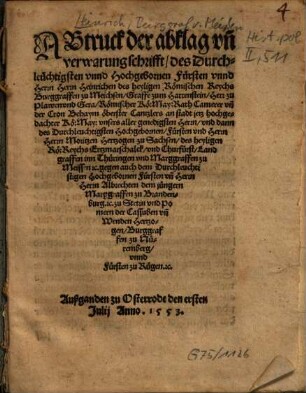 Heinrich, Burggraf v. Meißen
4
H. ref. pol
II, 511
ABtruck der abklag vñ
verwarung schrifft / des Durch-
leuchtigsten vnnd Hochgebornen Fürsten vnnd
Herrn Herrn Heinrichen des heyligen Römischen Reychs
Burggraffen zu Meichsen / Graffe zum Hartenstein / Herr zu
Plawen vnd Gera / Römischer Kö: May: Rath Camerer vñ
der Cron Behaym öberster Cantzlers an stadt jrer hochge
dachter Kö: May: vnsers aller genedigsten Hern / vnd dann
des Durchleuchtigsten Hochgebornen / Fürsten vnd Herrn
Herrn Moritzen Hertzogen zu Sachsen / des heyligen
Rö: Reychs Ertzmarschalck / vnd Churfürst / Land
graffen inn Thüringen vnd Marggraffen zu
Meissñ ꝛc. gegen auch dem Durchleuchti
gisten Hochgebornen Fürsten vñ Herrn
Herrn Albrechten dem jüngern
Marggraffen zu Brandenn
burg ꝛc. zu Stetin vnd Po
mern der Cassuben vñ
Wenden Hertzo-
gen / Burggraf
fen zu Nü-
remberg /
vnnd
Fürsten zu Rügen ꝛc.
Außganden zu Osterrode den ersten
Julij Anno. 1553.
G75/1186